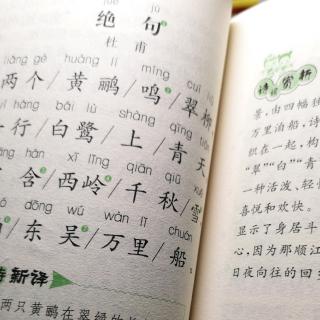 jué jù
绝 句
杜 甫
gè huáng lí míng cuì
两个/黄鹂/鸣/翠柳
háng bái lù shàng qīng tiān
一行/白鹭/上/青天
hán xī lǐng qiān qiū xuě
含/西岭/千秋/雪
dōng wú wàn lǐ chuán
东吴/万里/船
诗新译
两只黄鹂在翠绿的
诗词赏析
景，由四幅独
万里泊船，诗
织在一起，构
“翠”“白”“青”
一种活泼、轻
喜悦和欢快。
显示了身居斗
心，因为那顺江
日夜向往的回乡